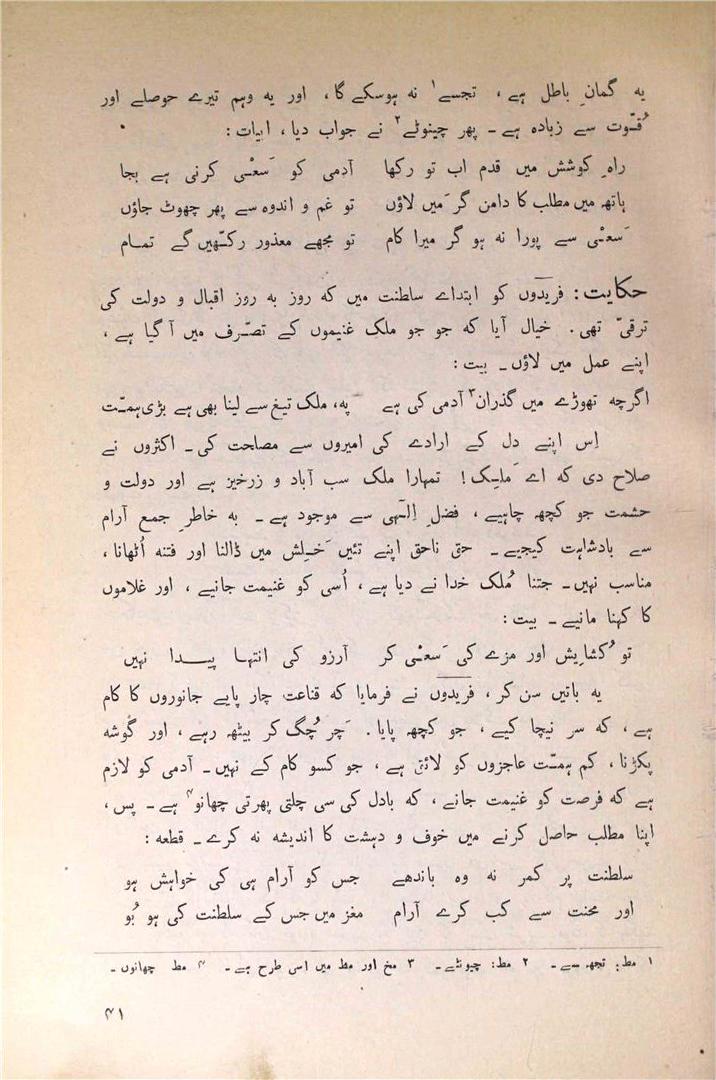 یہ گمانِ باطل ہے، تجسے۱ نہ ہوسکے گا، اور یہ وہم تیرے حوصلے اور
قُوّت سے زیادہ ہے۔ پھر چینوٹے۲ نے جواب دیا، ابیات:
راہِ کوشش میں قدم اب تو رکھا آدمی کو سَعْی کرنی ہے بجا
ہاتھ میں مطلب کا دامن گر مَیں لاؤں تو غم و اندوہ سے پھر چھوٹ جاؤں
سَعْی سے پورا نہ ہو گر میرا کام تو مجھے معذور رکّھیں گے تمام
حکایت: فریدوں کو ابتداے سلطنت میں کہ روز بہ روز اقبال و دولت کی
ترقیّ تھی۔ خیال آیا کہ جو جو ملک غنیموں کے تصّرف میں آ گیا ہے،
اپنے عمل میں لاؤں۔ بیت:
اگرچہ تھوڑے میں گذران۳ آدمی کی ہے پہ، ملک تیغ سے لینا بھی ہے بڑی ہمّت
اِس اپنے دل کے ارادے کی امیروں سے مصلحت کی۔ اکثروں نے
صلاح دی کہ اے مَلِک! تمہارا ملک سب آباد و زرخیز ہے اور دولت و
حشمت جو کچھ چاہیے، فضلِ اِلٰہی سے موجود ہے۔ بہ خاطرِ جمع آرام
سے بادشاہت کیجیے۔ حق ناحق اپنے تئیں خَلِش میں ڈالنا اور فتنہ اُٹھانا،
مناسب نہیں۔ جتنا مُلک خدا نے دیا ہے، اُسی کو غنیمت جانیے، اور غلاموں
کا کہنا مانیے۔ بیت:
تو کُشایِش اور مزے کی سَعْی کر آرزو کی انتہا پیدا نہیں
یہ باتیں سن کر، فریدوں نے فرمایا کہ قناعت چار پایے جانوروں کا کام
ہے، کہ سر نیچا کیے، جو کچھ پایا۔ چَر چُگ کر بیٹھ رہے، اور گوشہ
پکڑنا، کم ہمّت عاجزوں کو لائق ہے، جو کسو کام کے نہیں۔ آدمی کو لازم
ہے کہ فرصت کو غنیمت جانے، کہ بادل کی سی چلتی پھرتی چھانو۴ ہے۔ پس،
اپنا مطلب حاصل کرنے میں خوف و دہشت کا اندیشہ نہ کرے۔ قطعہ:
سلطنت پر کمر نہ وہ باندھے جس کو آرام ہی کی خواہش ہو
اور محنت سے کب کرے آرام مغز میں جس کے سلطنت کی ہو بُو
۱ مط: تجھ سے۔ ۲ مط: چیونٹے۔ ۳ مخ اور مط میں اسی طرح ہے۔ ۴ مط چھانوں۔
۴۱